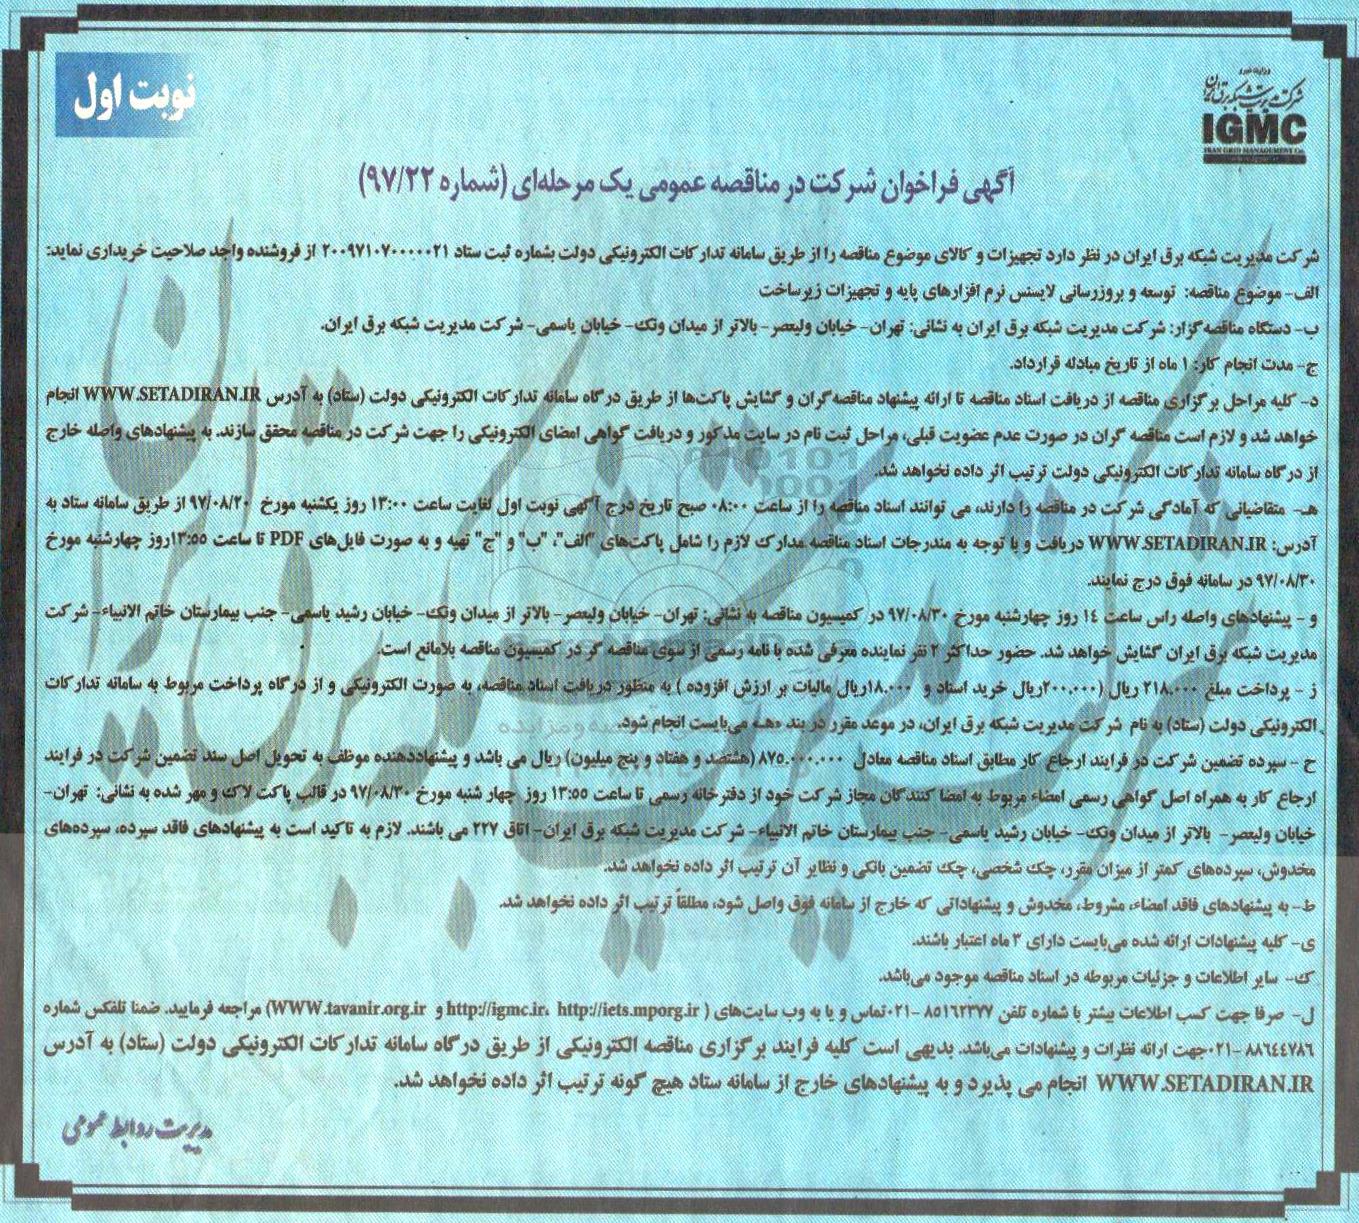 نوبت اول
وزارت نیرو
شرکت مدیریت شبکه برق ایران
IGMC
IRAN GRID MANAGEMENT Co.
آگهی فراخوان شرکت در مناقصه عمومی یک مرحله‌ای (شماره ۹۷/۲۲)
شرکت مدیریت شبکه برق ایران در نظر دارد تجهیزات و کالای موضوع مناقصه را از طریق سامانه تدارکات الکترونیکی دولت بشماره ثبت ستاد ۲۰۰۹۷۱۰۷۰۰۰۰۰۲۱ از فروشنده واجد صلاحیت خریداری نماید:
الف- موضوع مناقصه: توسعه و بروزرسانی لایسنس نرم افزارهای پایه و تجهیزات زیرساخت
ب- دستگاه مناقصه‌گزار: شرکت مدیریت شبکه برق ایران به نشانی: تهران- خیابان ولیعصر- بالاتر از میدان ونک- خیابان یاسمی- شرکت مدیریت شبکه برق ایران.
ج- مدت انجام کار: ۱ ماه از تاریخ مبادله قرارداد.
د- کلیه مراحل برگزاری مناقصه از دریافت اسناد مناقصه تا ارائه پیشنهاد مناقصه‌گران و گشایش پاکت‌ها از طریق درگاه سامانه تدارکات الکترونیکی دولت (ستاد) به آدرس WWW.SETADIRAN.IR انجام
خواهد شد و لازم است مناقصه گران در صورت عدم عضویت قبلی، مراحل ثبت نام در سایت مذکور و دریافت گواهی امضای الکترونیکی را جهت شرکت در مناقصه محقق سازند. به پیشنهادهای واصله خارج
از درگاه سامانه تدارکات الکترونیکی دولت ترتیب اثر داده نخواهد شد.
هـ- متقاضیانی که آمادگی شرکت در مناقصه را دارند، می توانند اسناد مناقصه را از ساعت ۰۸:۰۰ صبح تاریخ درج آگهی نوبت اول لغایت ساعت ۱۳:۰۰ روز یکشنبه مورخ ۹۷/۰۸/۲۰ از طریق سامانه ستاد به
آدرس: WWW.SETADIRAN.IR دریافت و با توجه به مندرجات اسناد مناقصه مدارک لازم را شامل پاکت‌های "الف"، "ب" و "ج" تهیه و به صورت فایل‌های PDF تا ساعت ۱۳:۵۵روز چهارشنبه مورخ
۹۷/۰۸/۳۰ در سامانه فوق درج نمایند.
و - پیشنهادهای واصله راس ساعت ۱۴ روز چهارشنبه مورخ ۹۷/۰۸/۳۰ در کمیسیون مناقصه به نشانی: تهران- خیابان ولیعصر- بالاتر از میدان ونک- خیابان رشید یاسمی- جنب بیمارستان خاتم الانبیاء- شرکت
مدیریت شبکه برق ایران گشایش خواهد شد. حضور حداکثر ۲ نفر نماینده معرفی شده با نامه رسمی از سوی مناقصه گر در کمیسیون مناقصه بلامانع است.
ز - پرداخت مبلغ ۲۱۸.۰۰۰ ریال (۲۰۰.۰۰۰ریال خرید اسناد و ۱۸.۰۰۰ریال مالیات بر ارزش افزوده ) به منظور دریافت اسناد مناقصه، به صورت الکترونیکی و از درگاه پرداخت مربوط به سامانه تدارکات
الکترونیکی دولت (ستاد) به نام شرکت مدیریت شبکه برق ایران، در موعد مقرر در بند «هـ» می‌بایست انجام شود.
ح - سپرده تضمین شرکت در فرایند ارجاع کار مطابق اسناد مناقصه معادل ۸۷۵.۰۰۰.۰۰۰ (هشتصد و هفتاد و پنج میلیون) ریال می باشد و پیشنهاددهنده موظف به تحویل اصل سند تضمین شرکت در فرایند
ارجاع کار به همراه اصل گواهی رسمی امضاء مربوط به امضا کنندگان مجاز شرکت خود از دفترخانه رسمی تا ساعت ۱۳:۵۵ روز چهار شنبه مورخ ۹۷/۰۸/۳۰ در قالب پاکت لاک و مهر شده به نشانی: تهران-
خیابان ولیعصر- بالاتر از میدان ونک- خیابان رشید یاسمی- جنب بیمارستان خاتم الانبیاء- شرکت مدیریت شبکه برق ایران- اتاق ۲۲۷ می باشند. لازم به تاکید است به پیشنهادهای فاقد سپرده، سپرده‌های
مخدوش، سپرده‌های کمتر از میزان مقرر، چک شخصی، چک تضمین بانکی و نظایر آن ترتیب اثر داده نخواهد شد.
ط- به پیشنهادهای فاقد امضاء، مشروط، مخدوش و پیشنهاداتی که خارج از سامانه فوق واصل شود، مطلقاً ترتیب اثر داده نخواهد شد.
ی- کلیه پیشنهادات ارائه شده می‌بایست دارای ۳ ماه اعتبار باشند.
ک- سایر اطلاعات و جزئیات مربوطه در اسناد مناقصه موجود می‌باشد.
ل- صرفا جهت کسب اطلاعات بیشتر با شماره تلفن ۸۵۱۶۲۳۷۷ -۰۲۱تماس و یا به وب سایت‌های ( http://igmc.ir، http://iets.mporg.ir و WWW.tavanir.org.ir) مراجعه فرمایید. ضمنا تلفکس شماره
۸۸۶۴۴۷۸۶ -۰۲۱جهت ارائه نظرات و پیشنهادات می‌باشد. بدیهی است کلیه فرایند برگزاری مناقصه الکترونیکی از طریق درگاه سامانه تدارکات الکترونیکی دولت (ستاد) به آدرس
WWW.SETADIRAN.IR انجام می پذیرد و به پیشنهادهای خارج از سامانه ستاد هیچ گونه ترتیب اثر داده نخواهد شد.
مدیریت روابط عمومی